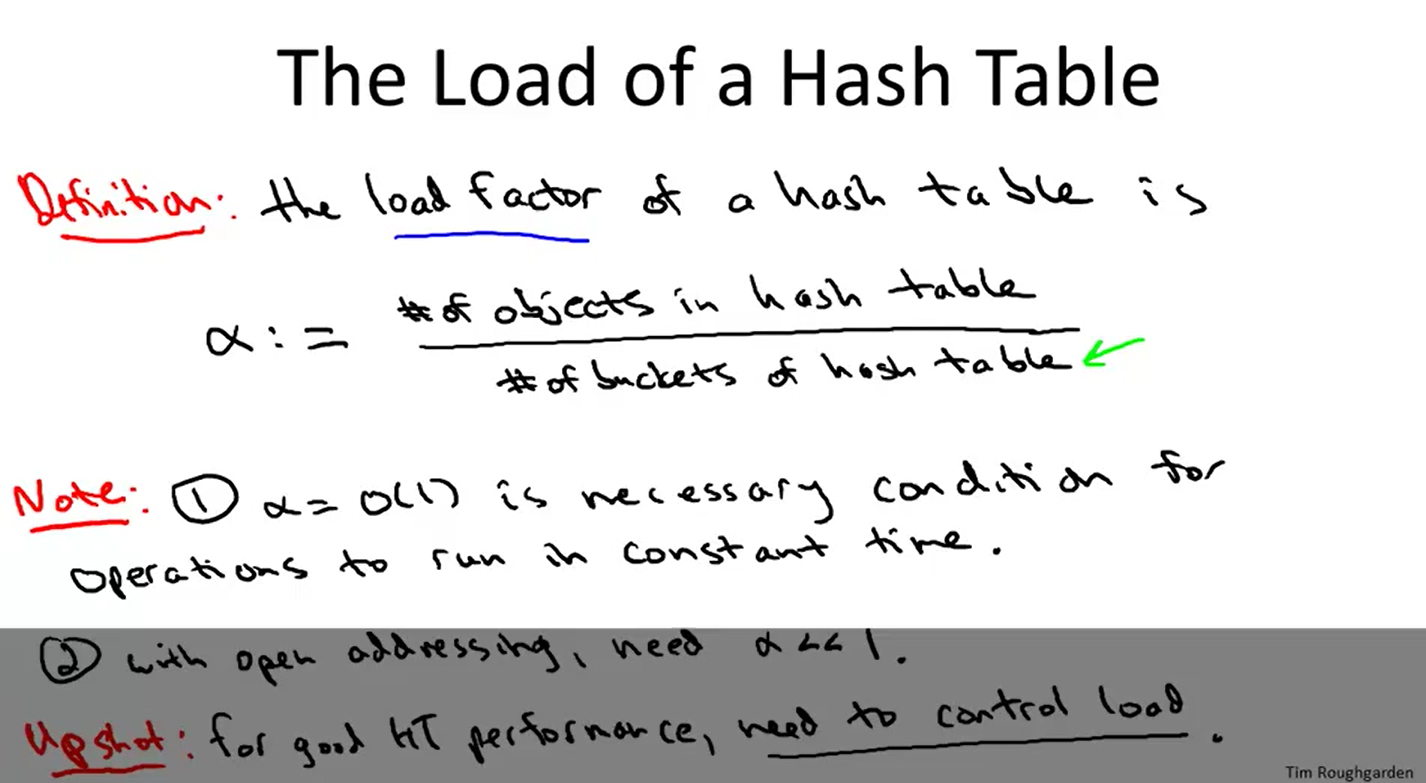 The Load of a Hash Table
Definition: the load factor of a hash table is
α := # of objects in hash table
# of buckets of hash table
Note: ① α = O(1) is necessary condition for
operations to run in constant time.
② with open addressing, need α << 1.
Upshot: for good HT performance, need to control load.
Tim Roughgarden